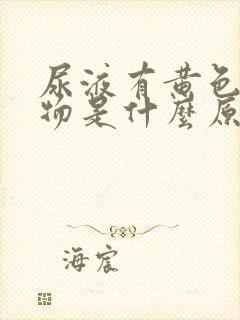 尿液有黄色
物是什麼原
海宸